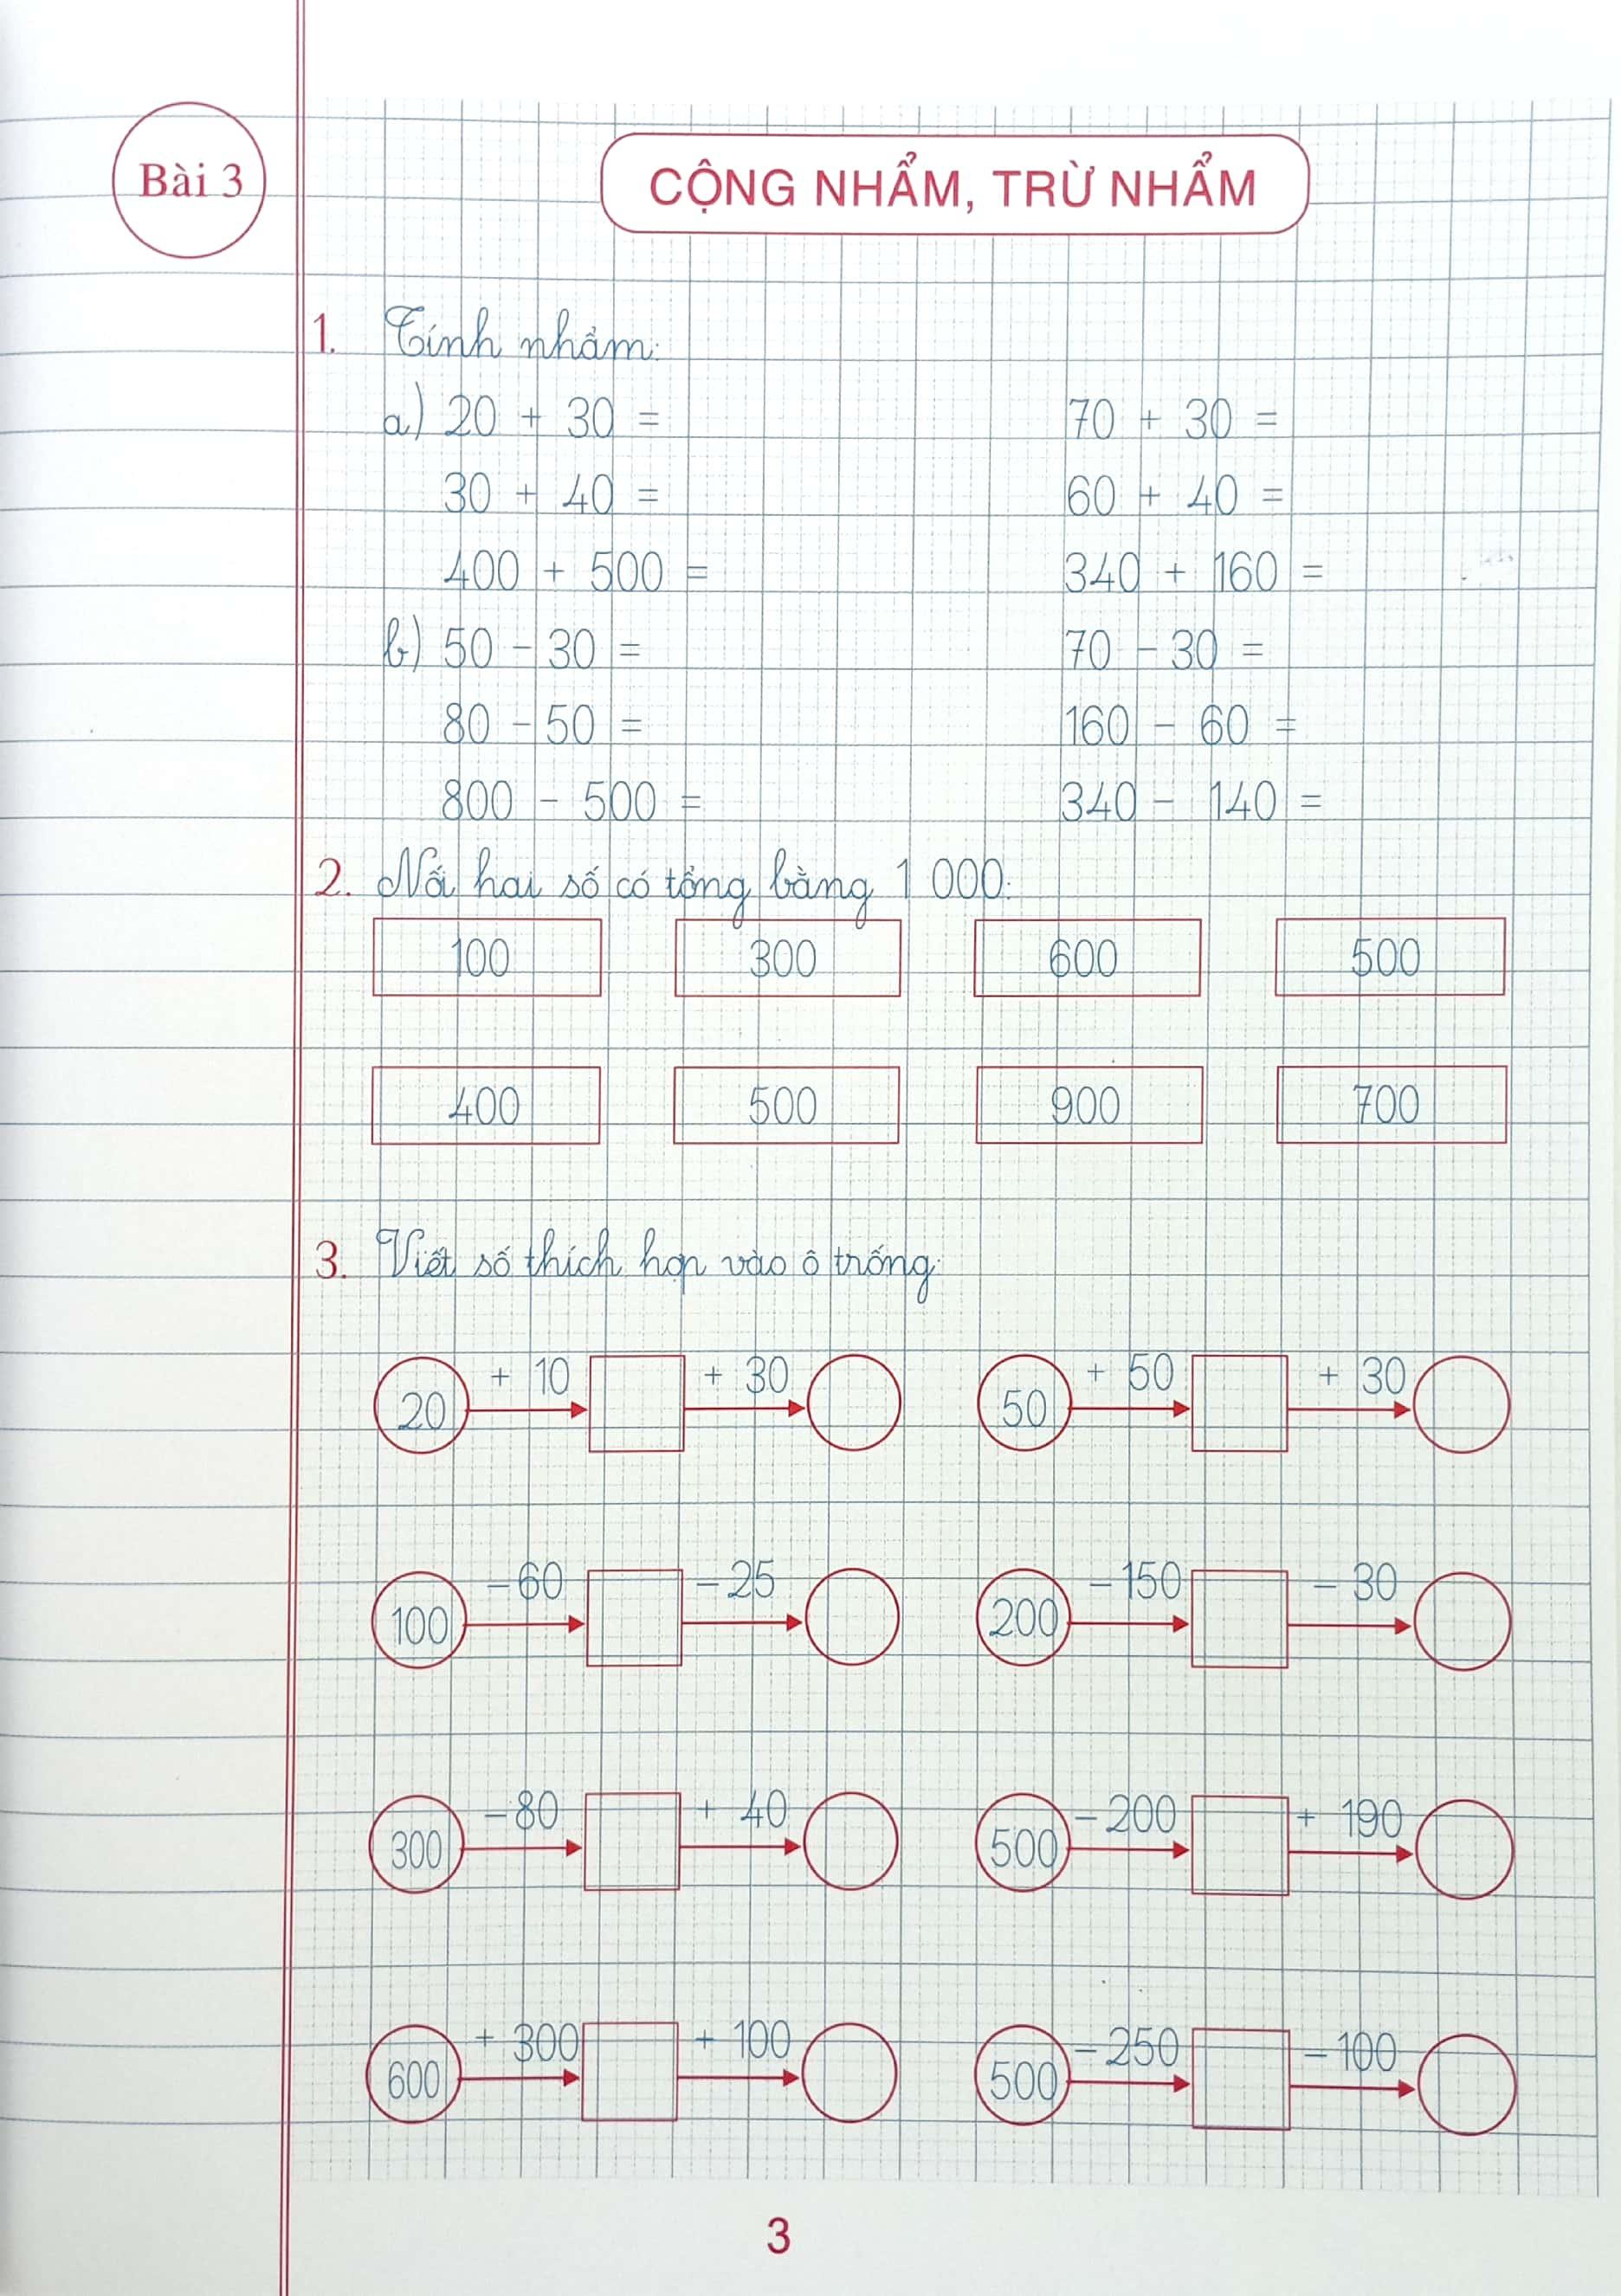 Bài 3
CỘNG NHẨM, TRỪ NHẨM
1. Tính nhẩm:
a) 20 + 30 = 70 + 30 =
30 + 40 = 60 + 40 =
400 + 500 = 340 + 160 =
b) 50 - 30 = 70 - 30 =
80 - 50 = 160 - 60 =
800 - 500 = 340 - 140 =
2. Nối hai số có tổng bằng 1 000:
100 300 600 500
400 500 900 700
3. Viết số thích hợp vào ô trống:
20 + 10 + 30 50 + 50 + 30
100 - 60 - 25 200 - 150 - 30
300 - 80 + 40 500 - 200 + 190
600 + 300 + 100 500 - 250 - 100
3